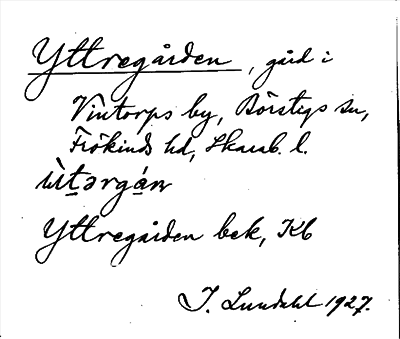 Yttregården, gård i
Vintorps by, Börstigs sn,
Frökinds hd, Skarab. l.
ùt̠ərgá̠n
Yttregården bek, Kb
I. Lundahl 1927.